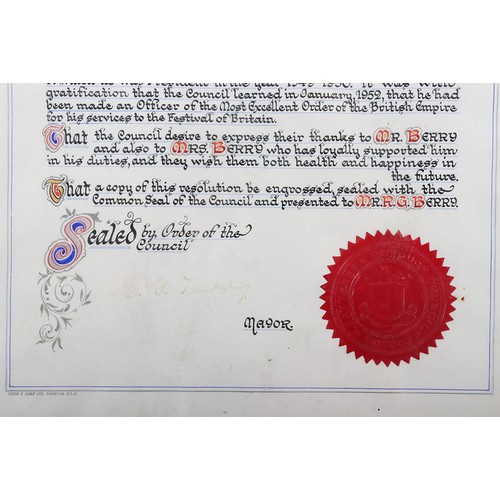 gratification that the Council learned in January, 1952, that he had
been made an Officer of the Most Excellent Order of the British Empire
for his services to the Festival of Britain.
That the Council desire to express their thanks to Mr. Berry
and also to Mrs. Berry who has loyally supported him
in his duties, and they wish them both health and happiness in
the future.
That a copy of this resolution be engrossed, sealed with the
Common Seal of the Council and presented to Mr. R. G. Berry.
Sealed by Order of the
Council
Mayor